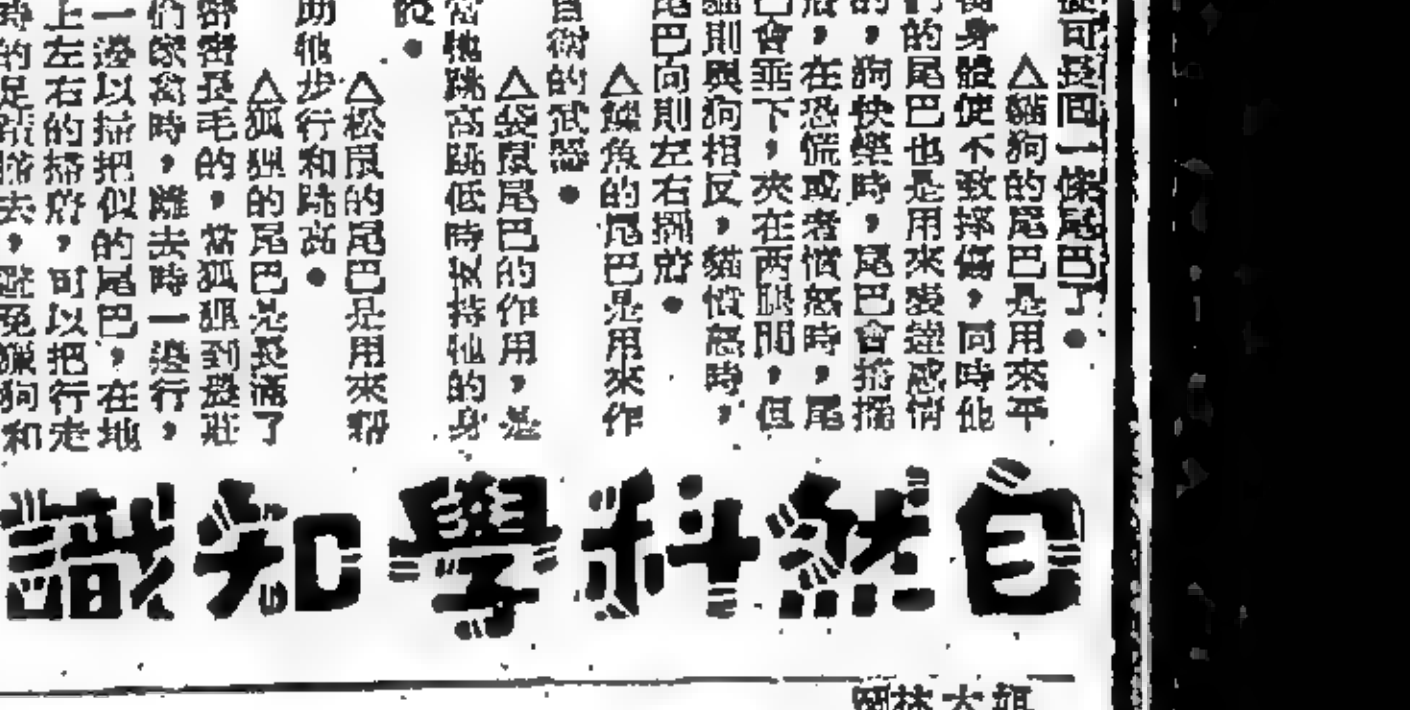 從可長回一條尾巴了●
△貓狗的尾巴是用來平
衡身體使不致摔傷，同時他
們的尾巴也是用來表達感情
的，狗快樂時，尾巴會搖搖
，在恐慌或者憤怒時，尾
巴會垂下，夾在兩腿間，但
貓則與狗相反，貓憤怒時，
尾巴向則左右擺游●
△魚的尾巴是用來作
自衛的武器●
△袋鼠尾巴的作用，是
當牠跳高跳低時支持牠的身
△松鼠的尾巴是用來幫
助牠步行和跳高●
△狐狸的尾巴是長滿了
密密長毛的，當狐狸到農莊
們家禽時，離去時一邊行，
一邊以掃把似的尾巴，在地
上左右的掃，可以把行走
時的足跡去，避免獵狗和
自然科學知識